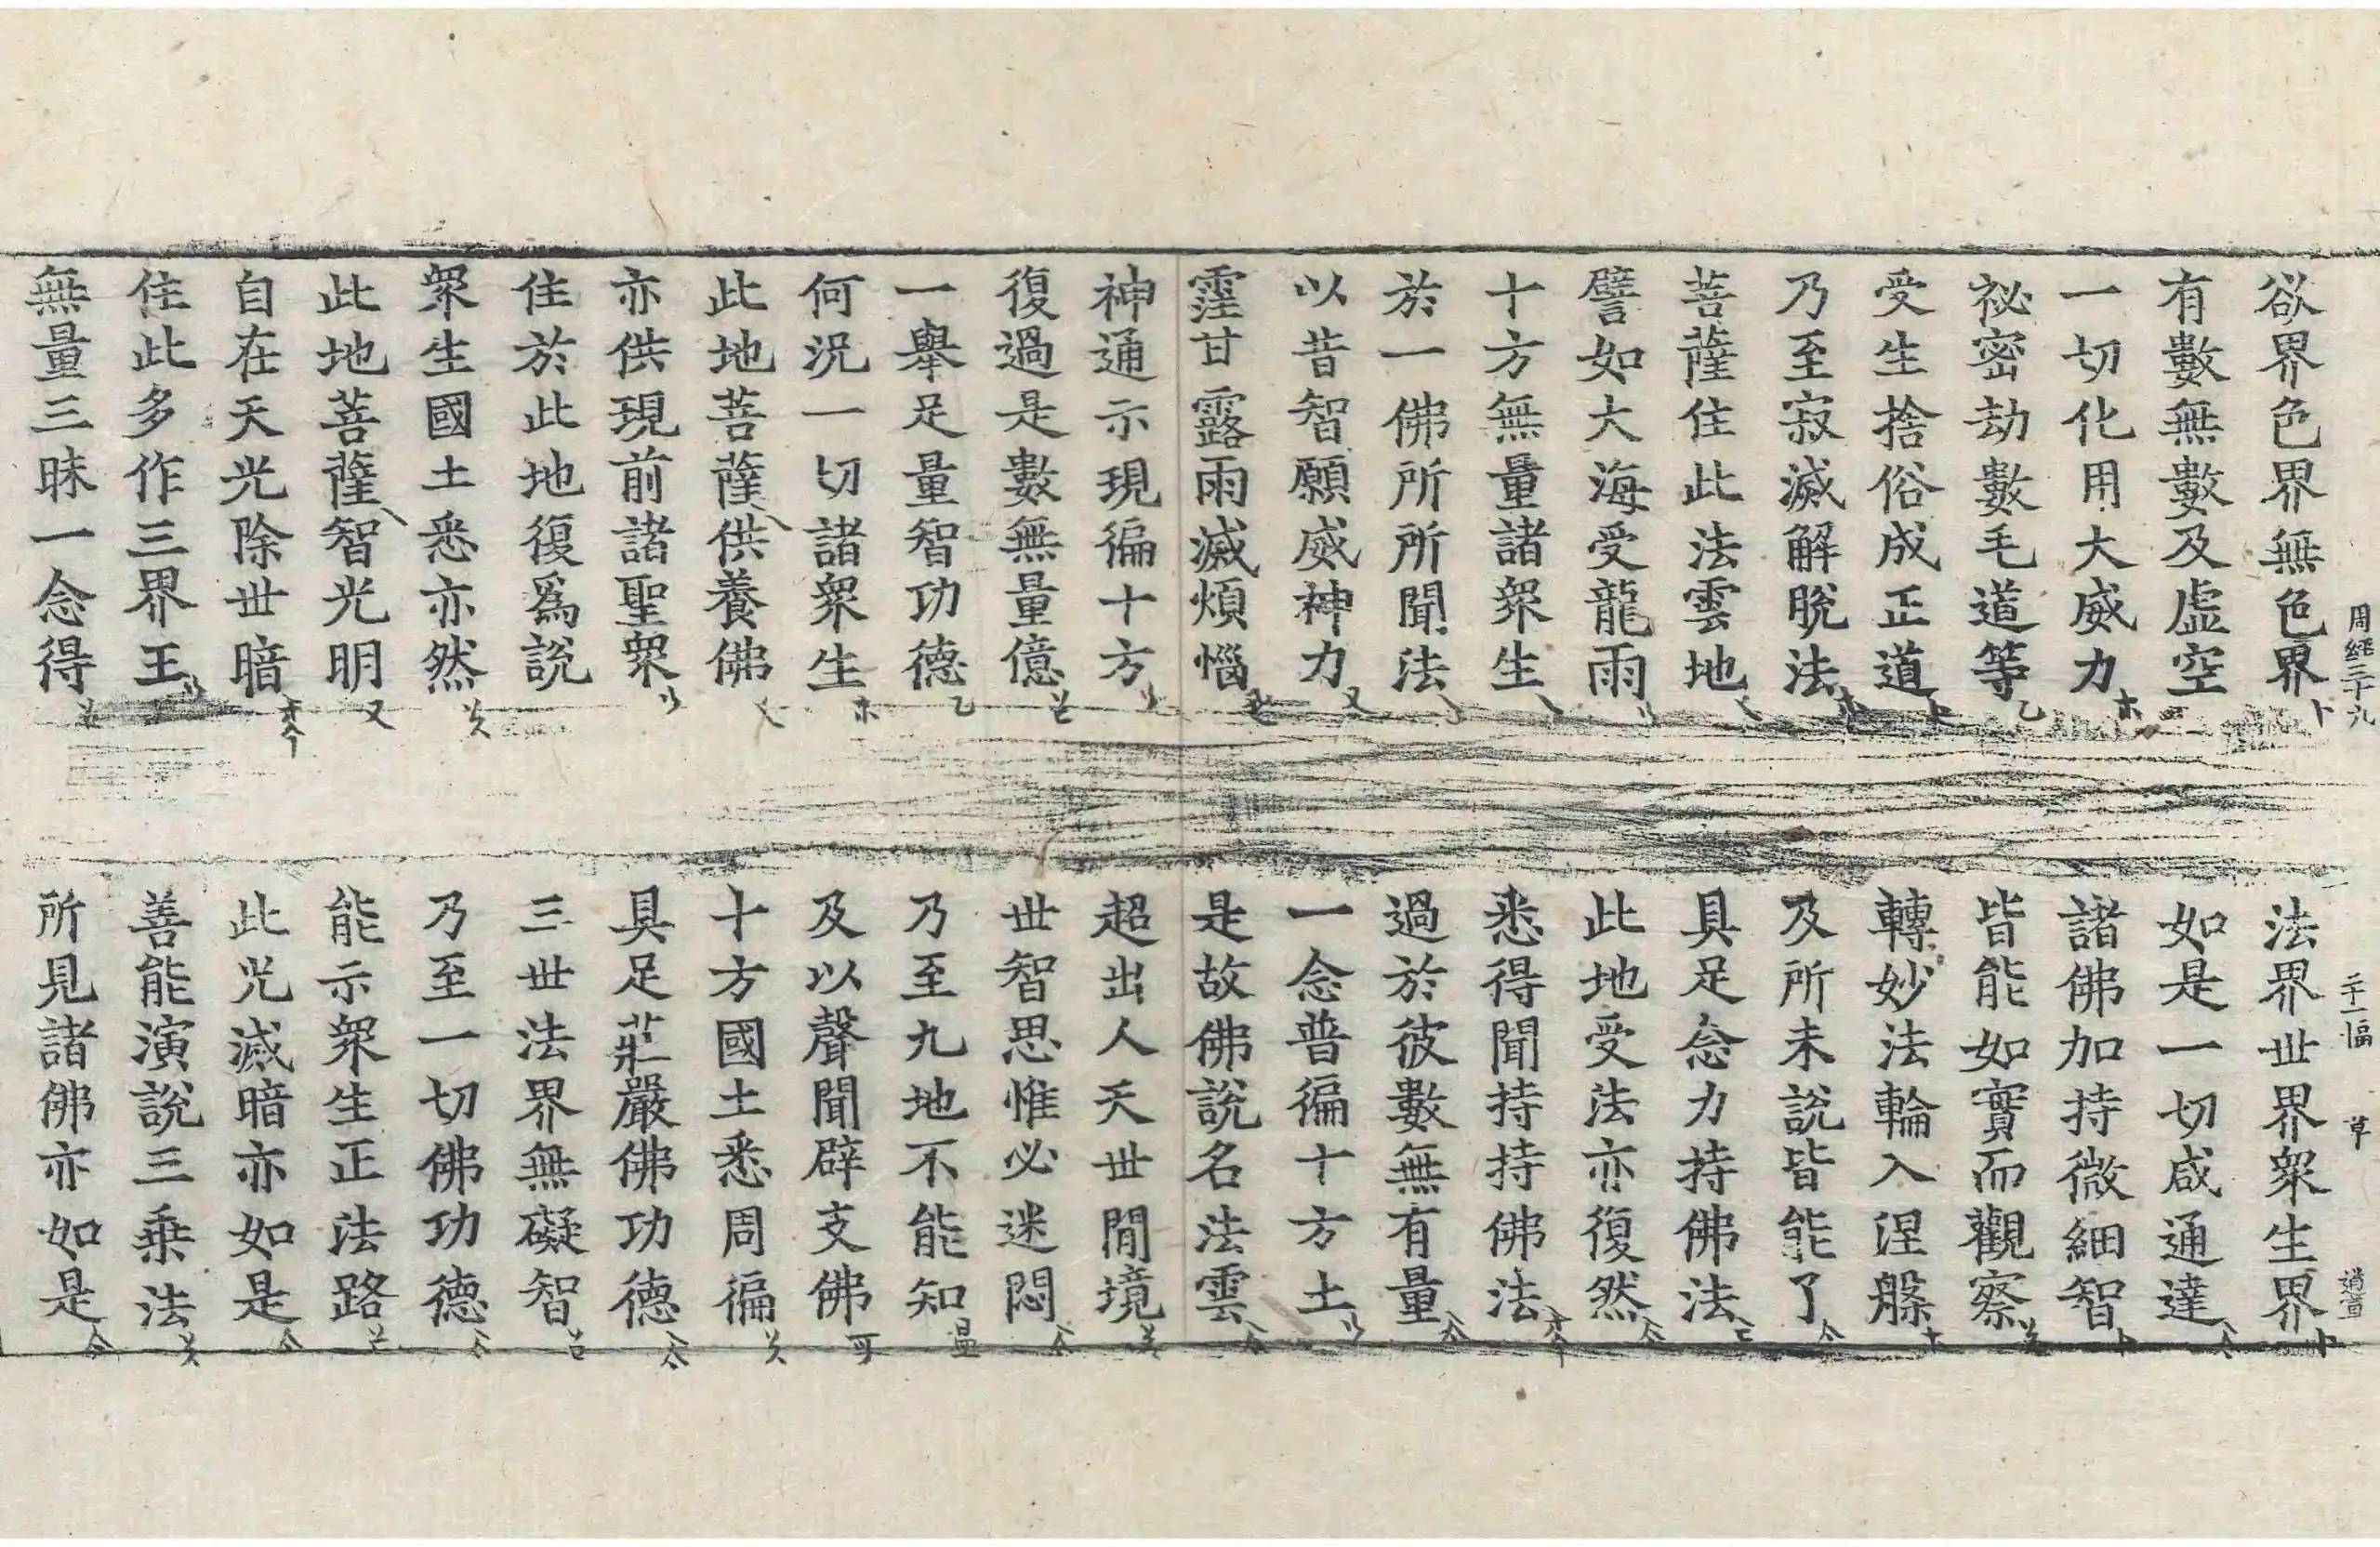 周經三十九 二十一幅 草 道首
欲界色界無色界 法界世界衆生界
有數無數及虛空 如是一切咸通達
一切化用大威力 諸佛加持微細智
祕密劫數毛道等 皆能如實而觀察
受生捨俗成正道 轉妙法輪入涅槃
乃至寂滅解脫法 及所未說皆能了
菩薩住此法雲地 具足念力持佛法
譬如大海受龍雨 此地受法亦復然
十方無量諸衆生 悉得聞持持佛法
於一佛所所聞法 過於彼數無有量
以昔智願威神力 一念普徧十方土
霔甘露雨滅煩惱 是故佛說名法雲
神通示現徧十方 超出人天世間境
復過是數無量億 世智思惟必迷悶
一舉足量智功德 乃至九地不能知
何況一切諸衆生 及以聲聞辟支佛
此地菩薩供養佛 十方國土悉周徧
亦供現前諸聖衆 具足莊嚴佛功德
住於此地復爲說 三世法界無礙智
衆生國土悉亦然 乃至一切佛功德
此地菩薩智光明 能示衆生正法路
自在天光除世暗 此光滅暗亦如是
住此多作三界王 善能演說三乘法
無量三昧一念得 所見諸佛亦如是